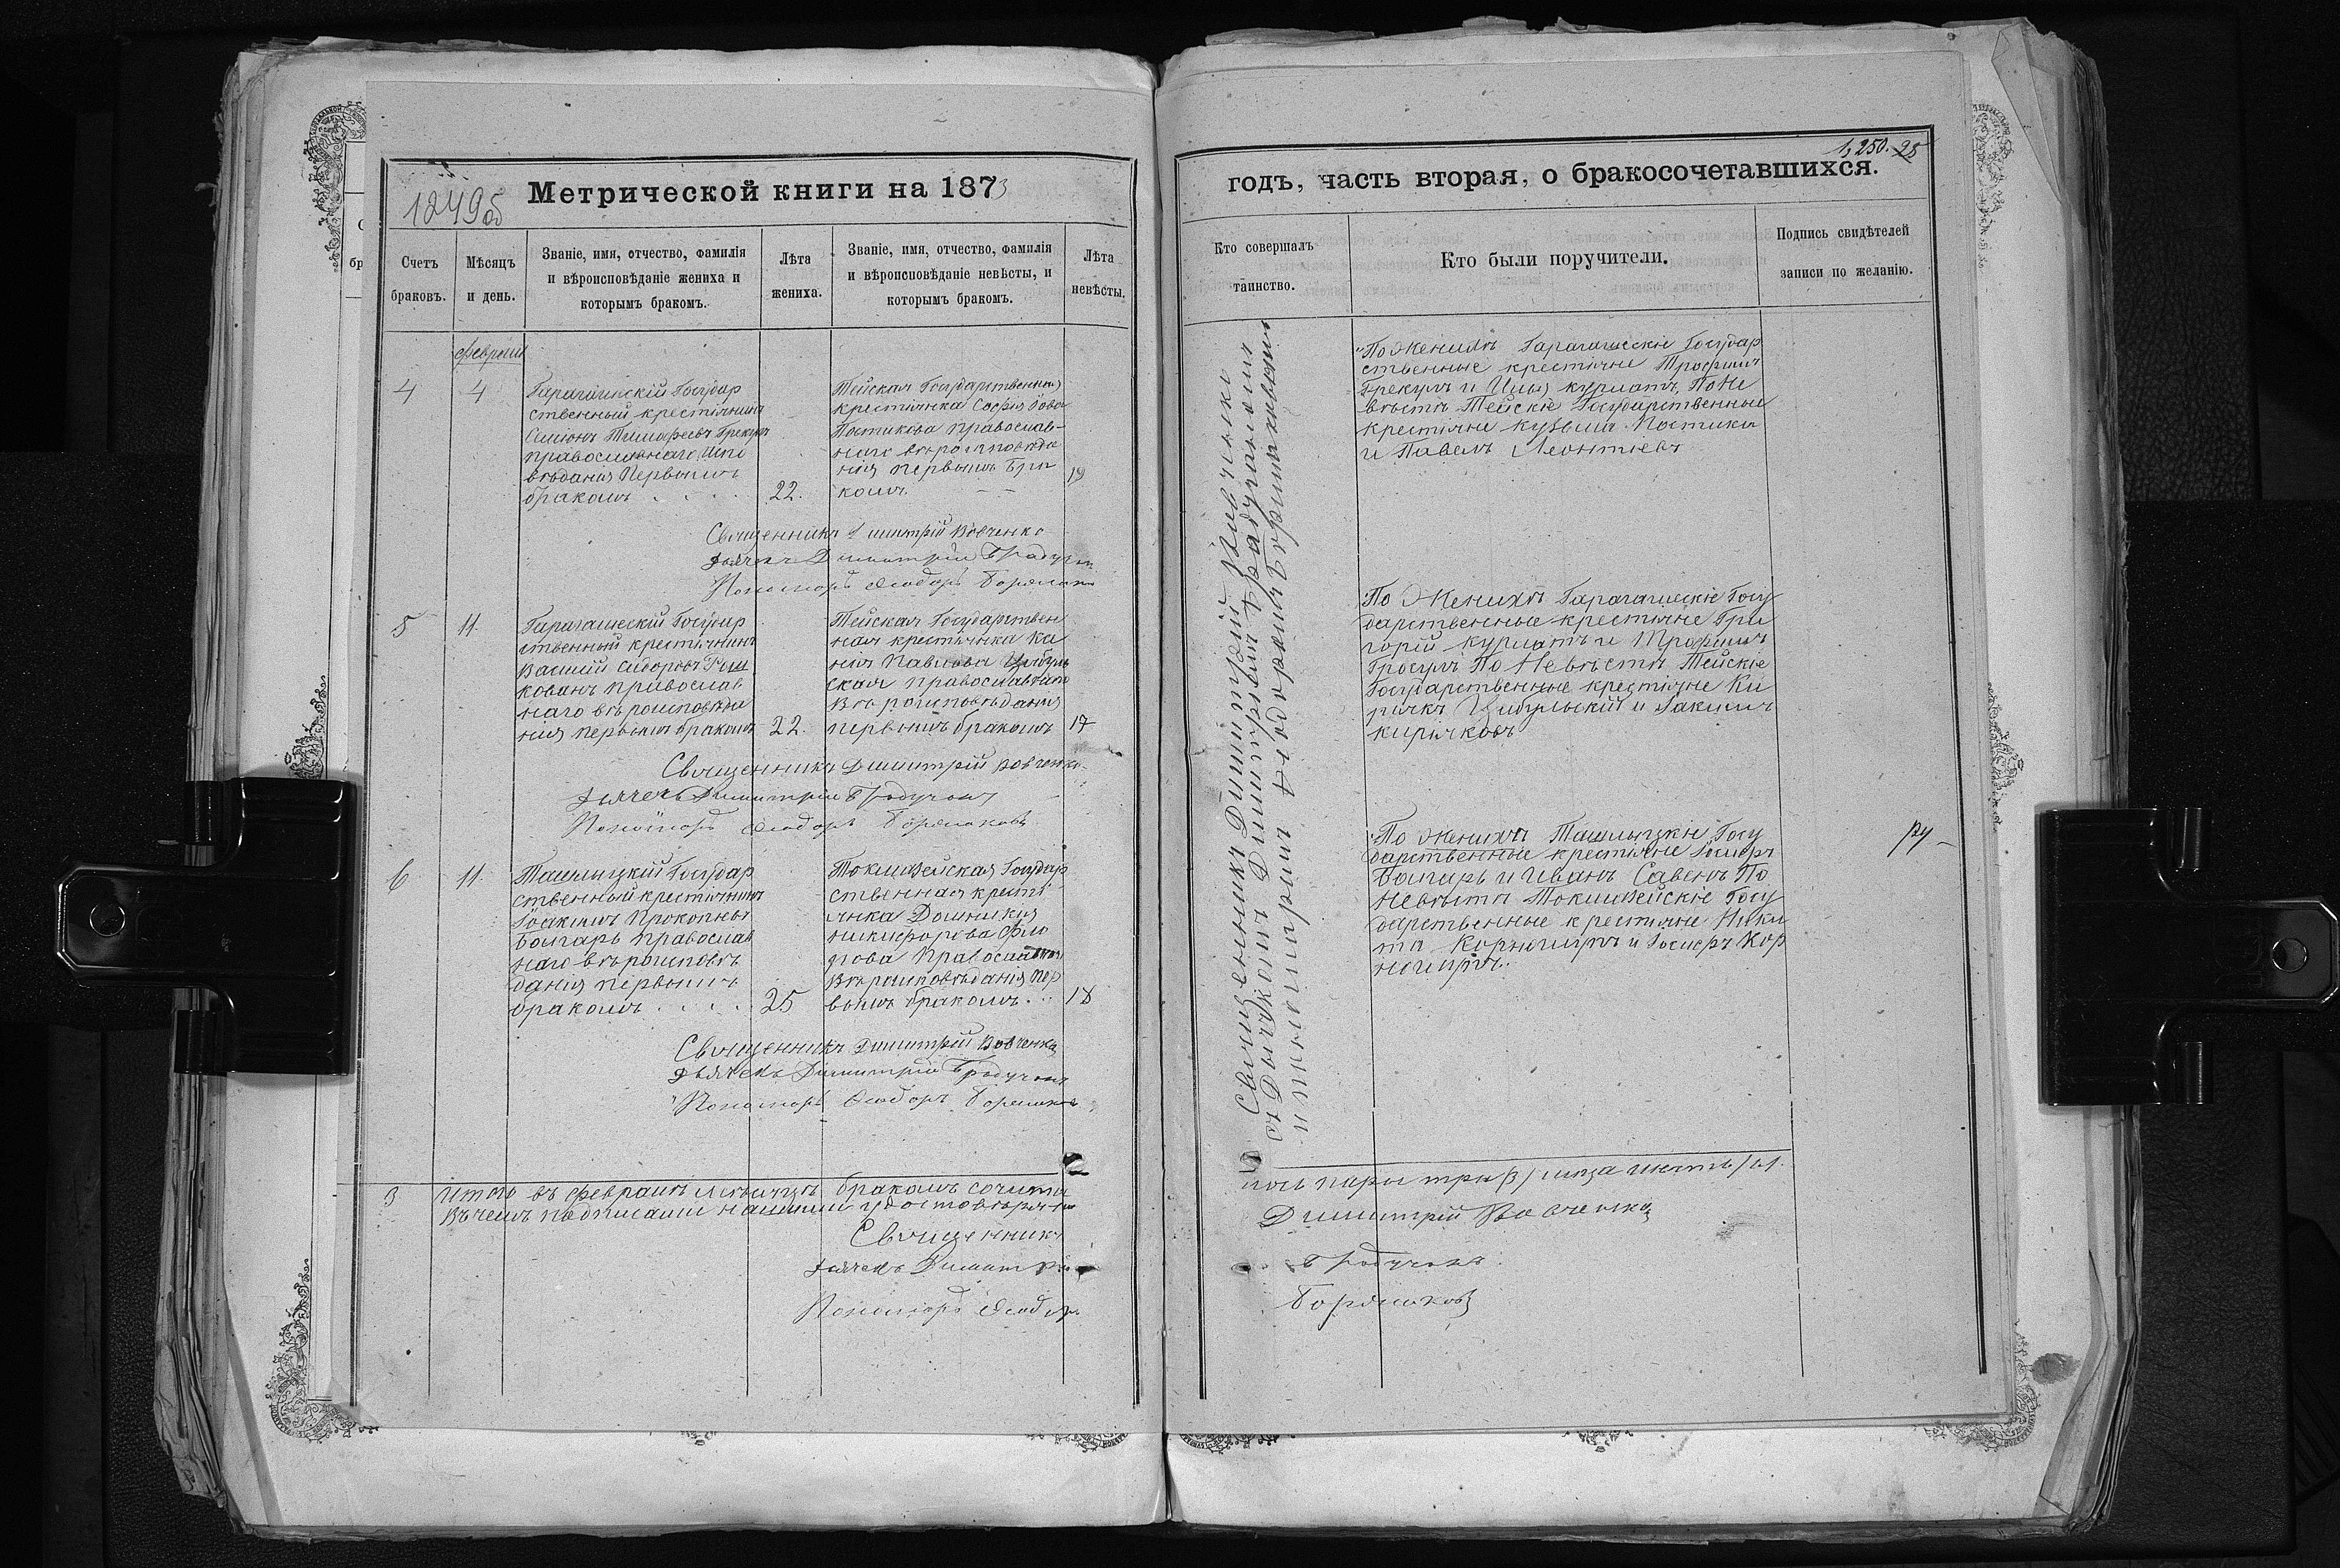 1249об
Метрической книги на 1873
Счетъ браковъ.
Мѣсяцъ и день.
Званіе, имя, отчество, фамилія
и вѣроисповѣданіе жениха и
которымъ бракомъ.
Лѣта жениха.
Званіе, имя, отчество, фамилія
и вѣроисповѣданіе невѣсты, и
которымъ бракомъ.
Лѣта невѣсты.
Февраль
4
4
Гарагашскій Государ
ственный крестьянинъ
Симіонъ Тимофеевъ Грекулъ
православнаго Испо
вѣданія Первымъ
бракомъ
22.
Тейская Государственная
крестьянка Софія
Постикова православ-
наго вѣроисповѣда
нія первымъ бра
комъ.
19
Священникъ Димитрій Вовченко
Дьячекъ Димитрій
Пономарь Феодоръ
5
11.
Гарагашскій Государ
ственный крестьянинъ
Василій Сидоровъ
кованъ православ
наго вѣроисповѣда
нія первымъ бракомъ
22.
Тейская Государствен
ная крестьянка Ка
нія Павлова Цибуль
ская православнаго
Вѣроисповѣданія
первымъ бракомъ
17
Священникъ Димитрій Вовченко
Дьячекъ Димитрій
Пономарь Феодоръ
6
11.
Ташлыцкій Государ
ственный крестьянинъ
Іоакимъ Прокопіевъ
Болгаръ православ
наго вѣроисповѣ
данія первымъ
бракомъ
25
Токмазейская Государ
ственная кресть
янка Домникія
никифорова Фло
рова Православнаго
Вѣроисповѣданія пер
вымъ бракомъ
18
Священникъ Димитрій Вовченко
Дьячекъ Димитрій
Пономарь Феодоръ
3
Итого въ февралѣ мѣсяцѣ бракомъ сочита
Въ чемъ подписами нашими удостовѣряемъ
Священникъ
Дьячекъ Димитрій
Пономарь Феодоръ
1,250. 25
годъ, часть вторая, о бракосочетавшихся.
Кто совершалъ таинство.
Кто были поручители.
Подпись свидѣтелей
записи по желанію.
Священникъ Димитрій Вовченко
съ Дьячкомъ Димитріемъ
и пономаремъ Феодоромъ
По Женихѣ Гарагашскіе Государ
ственные крестьяне Трофимъ
Грекулъ и Илья курматъ, По Не
вѣстѣ Тейскіе Государственные
крестьяне Кузьма Постика
и Павелъ Леонтіевъ
По Женихѣ Гарагашскіе Госу
дарственные крестьяне Гри
горій курматъ и Трофимъ
Гросулъ По Невѣстѣ Тейскіе
Государственные крестьяне Ки
рiякъ Цибульскій и Іакимъ
киріяковъ
По Женихѣ Ташлыцкіе Госу
дарственные крестьяне
Болгаръ и Иванъ Савенъ По
Невѣстѣ Токмазейскіе Госу
дарственные крестьяне Ники
та и Кор
ру
лось пары три /3/ лица шесть /6/.
Димитрій Вовченко